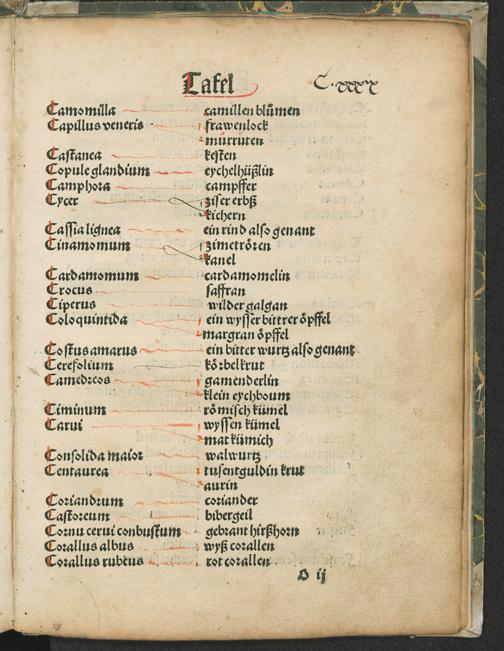 Tafel
Camomilla camillen blůmen
Capillus veneris frawenlock
murruten
Castanea kesten
Copule glandium eychelhüßlin
Camphora campffer
Cycer ziser erbß
kichern
Cassia lignea ein rind also genant
Cinamomum zimetrören
kanel
Cardamomum cardamomelin
Crocus saffran
Ciperus wilder galgan
Coloquintida ein wysser bittrer öpffel
margran öpffel
Costus amarus ein bitter wurtz also genant
Cerefolium körbelkrut
Camedreos gamenderlin
klein eychboum
Ciminum römisch kümel
Carui wyssen kümel
mat kümich
Consolida maior walwurtz
Centaurea tusentguldin krut
aurin
Coriandrum coriander
Castoreum bibergeil
Cornu cerui conbustum gebrant hirßhorn
Corallus albus wyß corallen
Corallus rubeus rot corallen
D ij